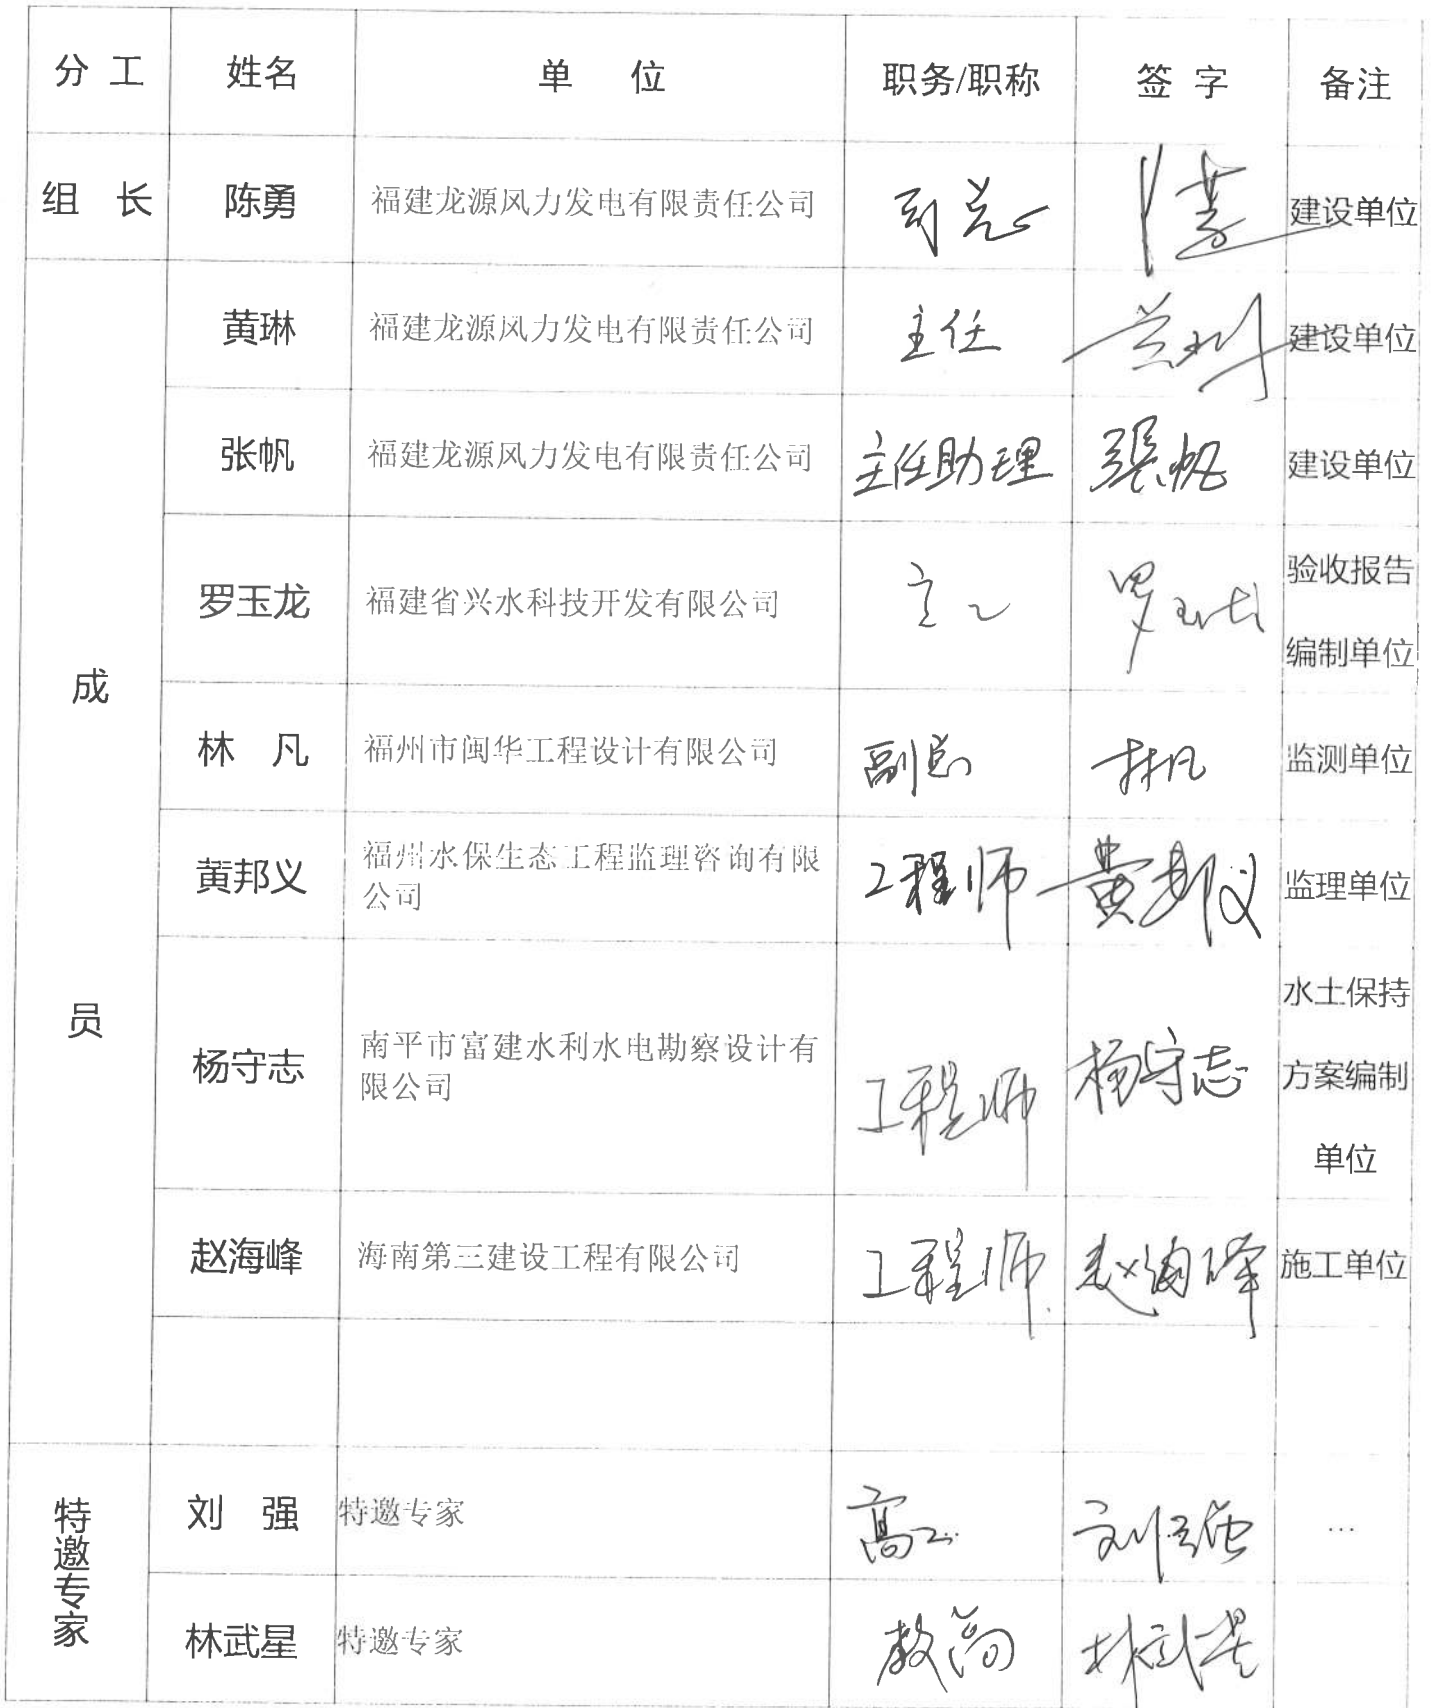 分 工 姓名 单 位 职务/职称 签 字 备注
组 长 陈勇 福建龙源风力发电有限责任公司 建设单位
黄琳 福建龙源风力发电有限责任公司 主任 建设单位
张帆 福建龙源风力发电有限责任公司 主任助理 張帆 建设单位
罗玉龙 福建省兴水科技开发有限公司 罗玉龙 验收报告
编制单位
成
林 凡 福州市闽华工程设计有限公司 副总 林凡 监测单位
黄邦义 福州水保生态工程监理咨询有限
公司 工程师 黄邦义 监理单位
员
杨守志 南平市富建水利水电勘察设计有
限公司 工程师 杨守志 水土保持
方案编制
单位
赵海峰 海南第三建设工程有限公司 工程师 赵海峰 施工单位
特邀专家
刘 强 特邀专家 高工 刘强 …
林武星 特邀专家 教高 林武星